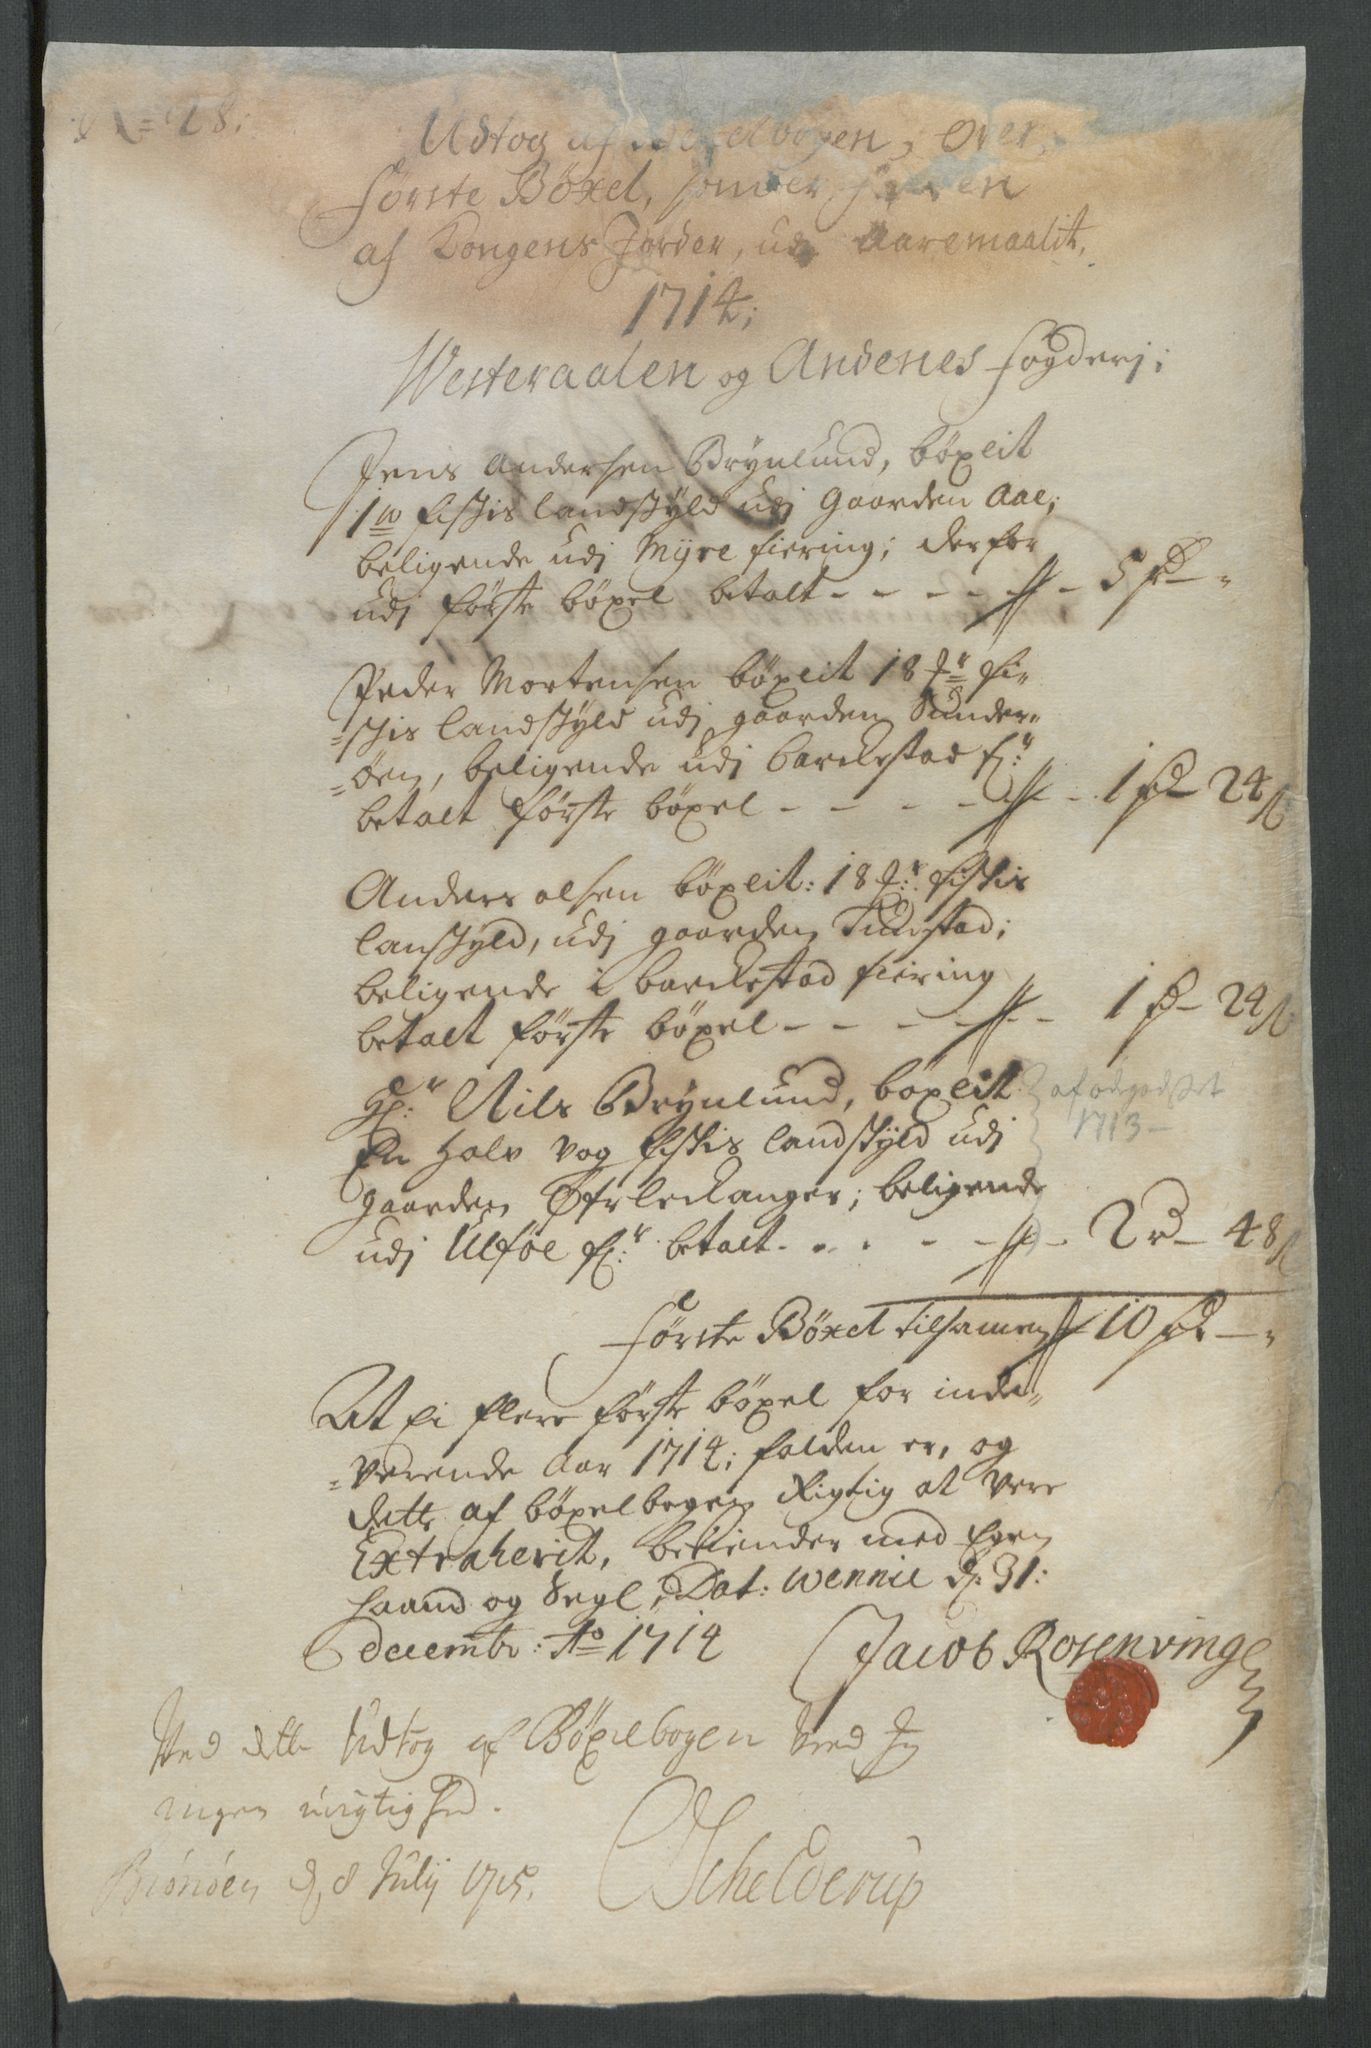 N=18:
Udtog af Bøxelbogen, Over
første Böxel,
af Kongens Jorder, udj Aaremaalit,
1714;
Westeraalen og Andenes fögderj;
Jens Andersen Brynlund, böxlit
1 w fischis landschÿld udj Gaarden Aae;
beligende udj Mÿre fiering; derfor
udj förste böxel betalt - - - - - 5 rd - "
Peder Mortensen böxlit 18 fi-
=schis landschÿld udj gaarden Sunder-
=öen, beligende udj barckestad f:
betalt förste böxel - - - - - 1 rd 24 s
Anders olsen böxlit: 18 fischis
lanschÿld, udj gaarden Tunstad;
beligende i barckestad fiering
betalt förste böxel - - - - - 1 rd - 24 s
Hr: Nils Brÿnlund, böxlit
af odegodset
En halv vog fischis landschÿld udj
1713 -
gaarden Øfrleckanger; beligende
udj Ulföe f: betalt - - - - - 2 rd - 48 s
förste Böxel tilsamen 10 rd - "
At Ei flere förste böxel for inde-
=verende Aar 1714; falden er, og
dette af böxelbogen Rigtig at vere
Extraherit, bekiender med Egen
haand og Segl, Dat: Wennie d: 31:
decembr: Ao 1714
Jacob Rosenvinge
Ved dette Udtog af Böxelbogen Veed Jeg
ingen urigtighed.
Brönöen d, 8 Julij 1715.
Schelderup